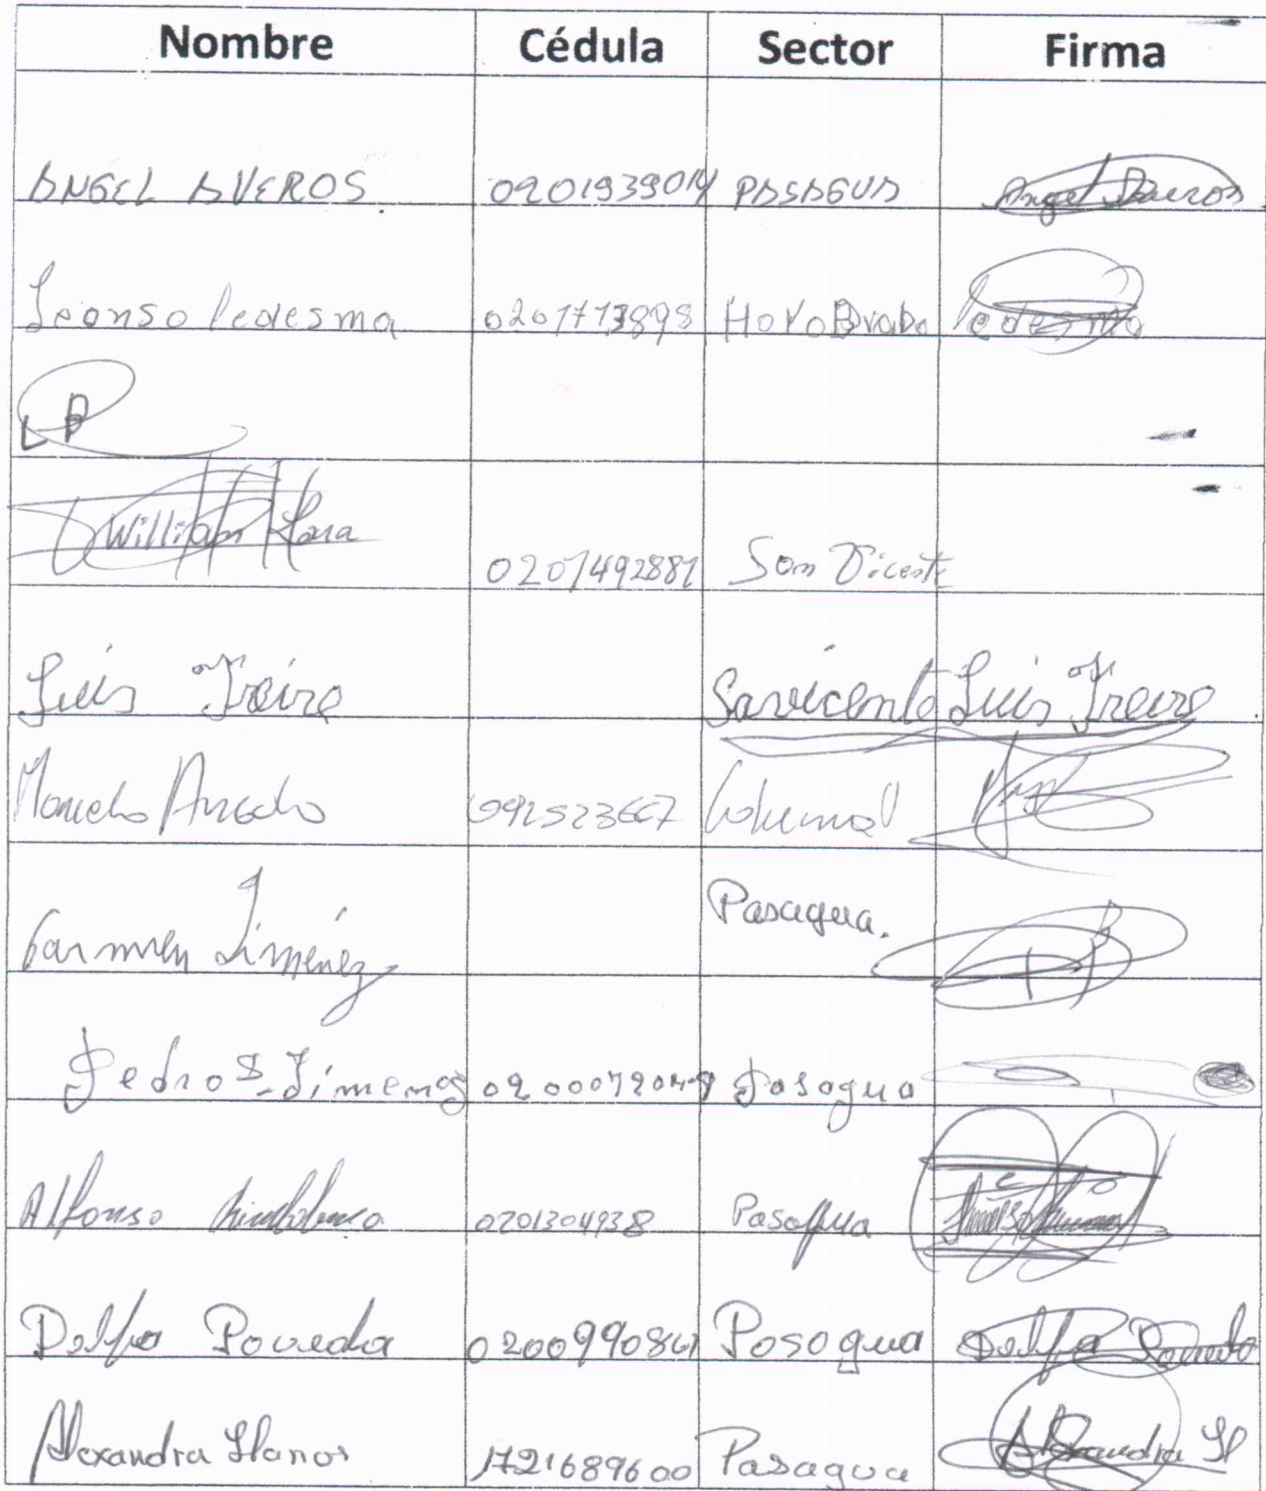 Nombre Cédula Sector Firma
ANGEL AVEROS 0201939014 PASAGUA Angel Averos
Leonso ledesma 0201773898 HoYoBrabo ledesma
LP
William 0201492881 San Vicente
Luis Freire Sanvicente Luis Freire
092523667
Carmen Jiménez Pasagua.
Pedro S Jimenes Pasagua
Alfonso 0201304938 Pasagua
Delfa Poveda Posogua Delfa Poveda
Alexandra Llanos 1721689600 Pasagua Alexandra Ll